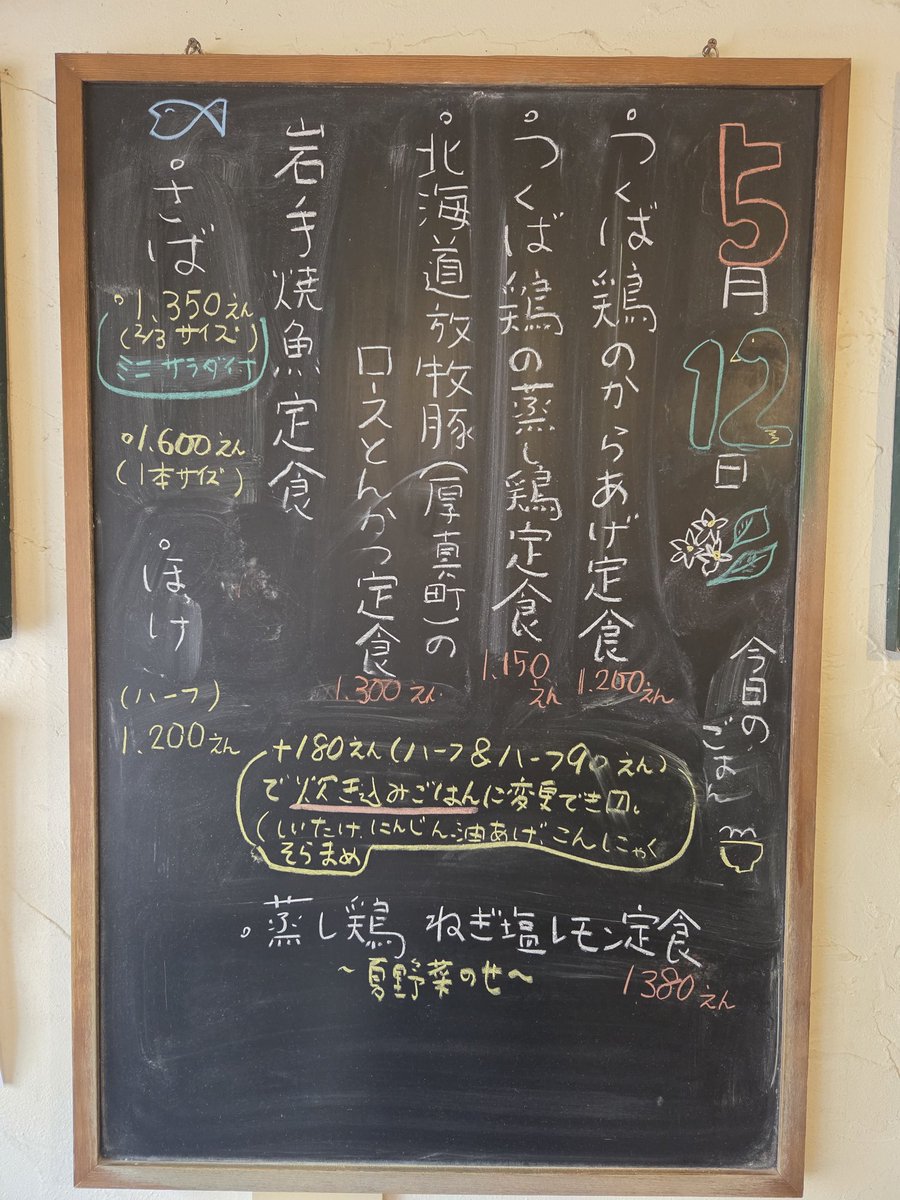 5月12日
今日のごはん
つくば鶏のからあげ定食
1.200えん
つくば鶏の蒸し鶏定食
1.150えん
北海道放牧豚(厚真町)の
ロースとんかつ定食
1.300えん
岩手焼魚定食
さば
1.350えん
(2/3サイズ)
ミニサラダイナ
1.600えん
(1本サイズ)
ほっけ
(ハーフ)
1.200えん
+180えん(ハーフ&ハーフ90えん)
で炊き込みごはんに変更でき〼。
(しいたけ、にんじん、油あげ、こんにゃく
そらまめ
蒸し鶏 ねぎ塩レモン定食
〜夏野菜のせ〜
1380えん